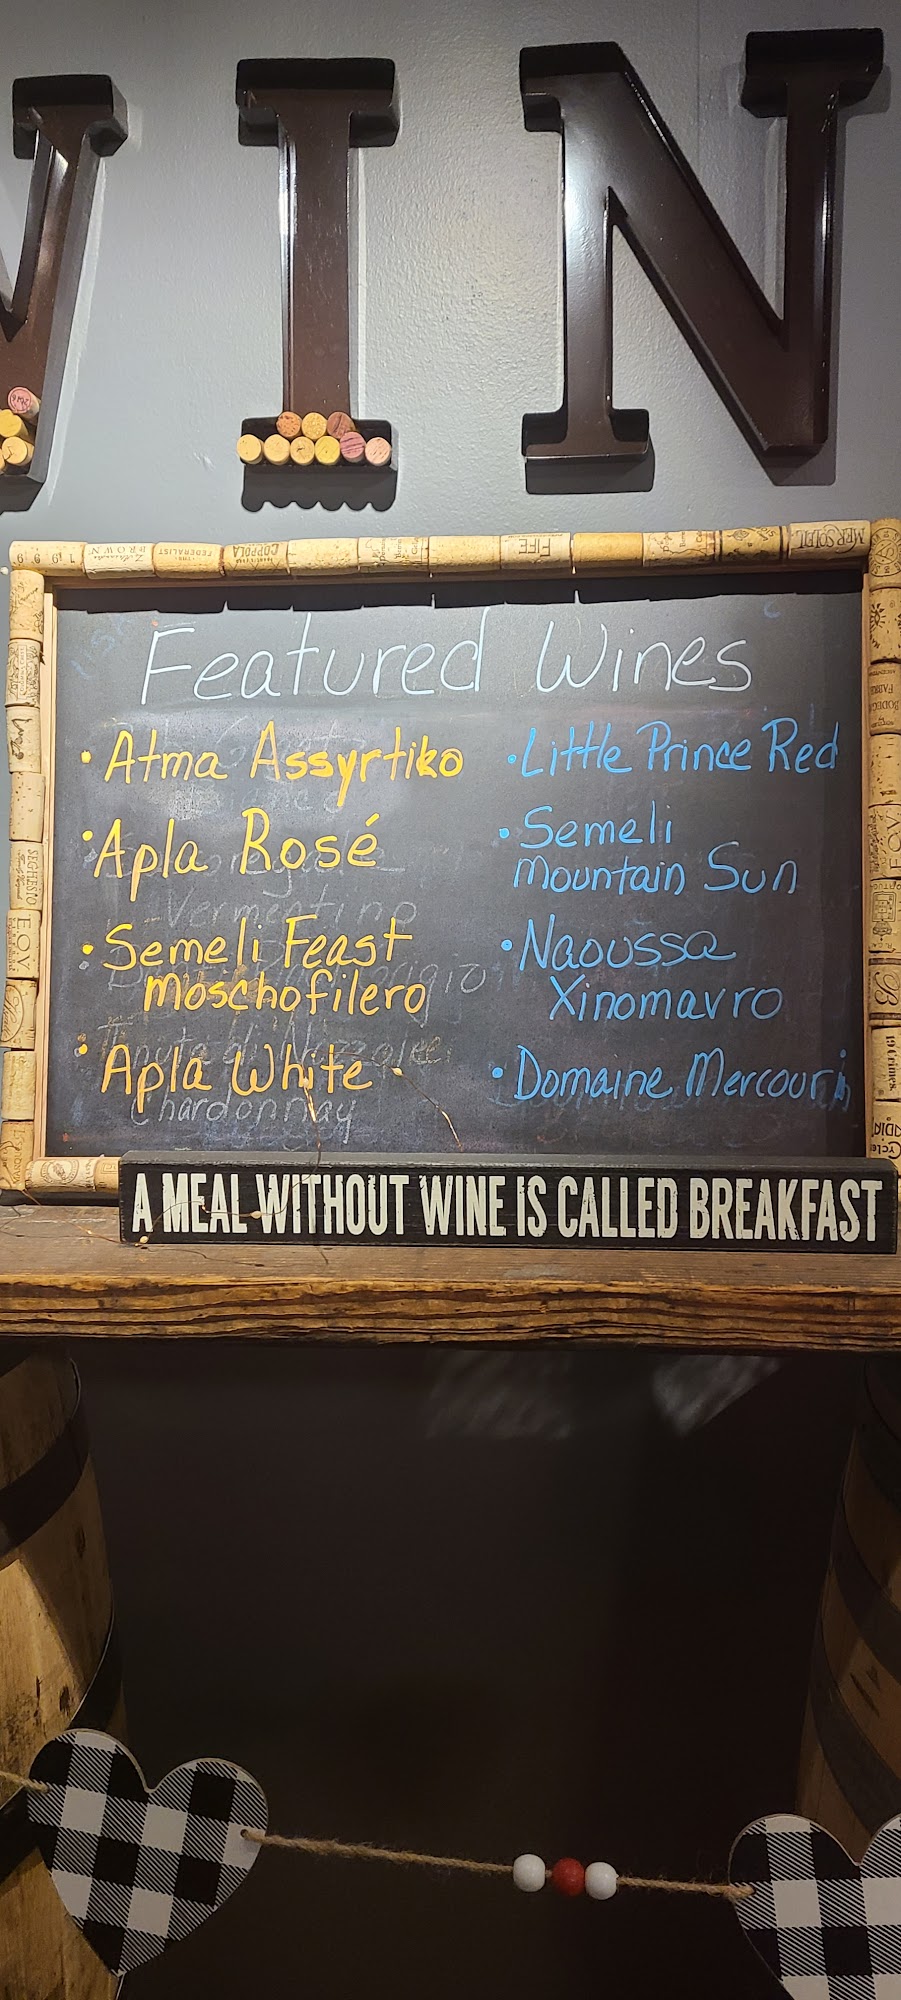 WIN
Featured Wines
• Atma Assyrtiko
• Apla Rosé
• Semeli Feast
Moschofilero
• Apla White
• Little Prince Red
• Semeli
Mountain Sun
• Naoussa
Xinomavro
• Domaine Mercouri
Vermentino
Chardonnay
A MEAL WITHOUT WINE IS CALLED BREAKFAST
FEDERALIST
COPPOLA
MER SOLEIL
SEGHESIO